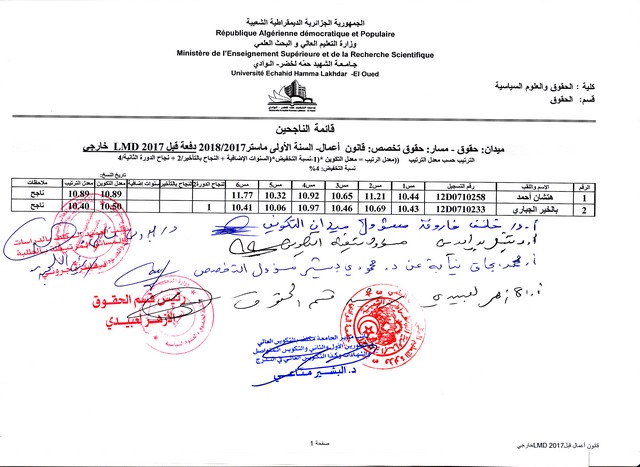 الجمهورية الجزائرية الديمقراطية الشعبية
République Algérienne démocratique et Populaire
وزارة التعليم العالي و البحث العلمي
Ministère de l'Enseignement Supérieure et de la Recherche Scientifique
جامعة الشهيد حمّه لخضر- الوادي
Université Echahid Hamma Lakhdar -El Oued
كلية : الحقوق والعلوم السياسية
قسم: الحقوق
قائمة الناجحين
ميدان: حقوق - مسار: حقوق تخصص: قانون أعمال- السنة الأولى ماستر2018/2017 دفعة قبل LMD 2017 خارجي
الترتيب حسب معدل الترتيب ((معدل الرتيب = معدل التكوين *(1-نسبة التخفيض*(السنوات الإضافية + النجاح بالتأخير/2 + نجاح الدورة الثانية/4
نسبة التخفيض: 4%
تاريخ النسخ:
الرقم الاسم واللقب رقم التسجيل مس1 مس2 مس3 مس4 مس5 مس6 نجاح الدورة2 النجاح بالتأخير سنوات إضافية معدل التكوين معدل الترتيب ملاحظات
1 هتشان أحمد 12D0710258 10.44 11.21 10.65 10.92 10.32 11.77 10.89 10.89 ناجح
2 بالخير الجباري 12D0710233 10.43 10.69 10.46 10.97 10.06 10.41 1 10.50 10.40 ناجح
أ.در خلف فاروق مسؤول ميدان التكوين
أ. محمد نيابة عن د. حمودي بشير مسؤول التخصص
قسم الحقوق
رئيس قسم الحقوق
الأزهر لعبيدي
مدير الجامعة مكلف بالتكوين العالي
والشهادات وكذا التكوين العالي في التدرج
د. البشير مناعي
صفحة 1
قانون أعمال قبل LMD 2017خارجي